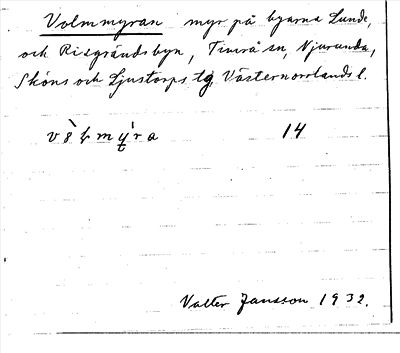 Volmmyran myr på byarna Lunde,
och Risgrändsbyn, Timrå sn, Njurunda,
Sköns och Ljustorps tg Västernorrlands l.
14
Valter Jansson 1932.